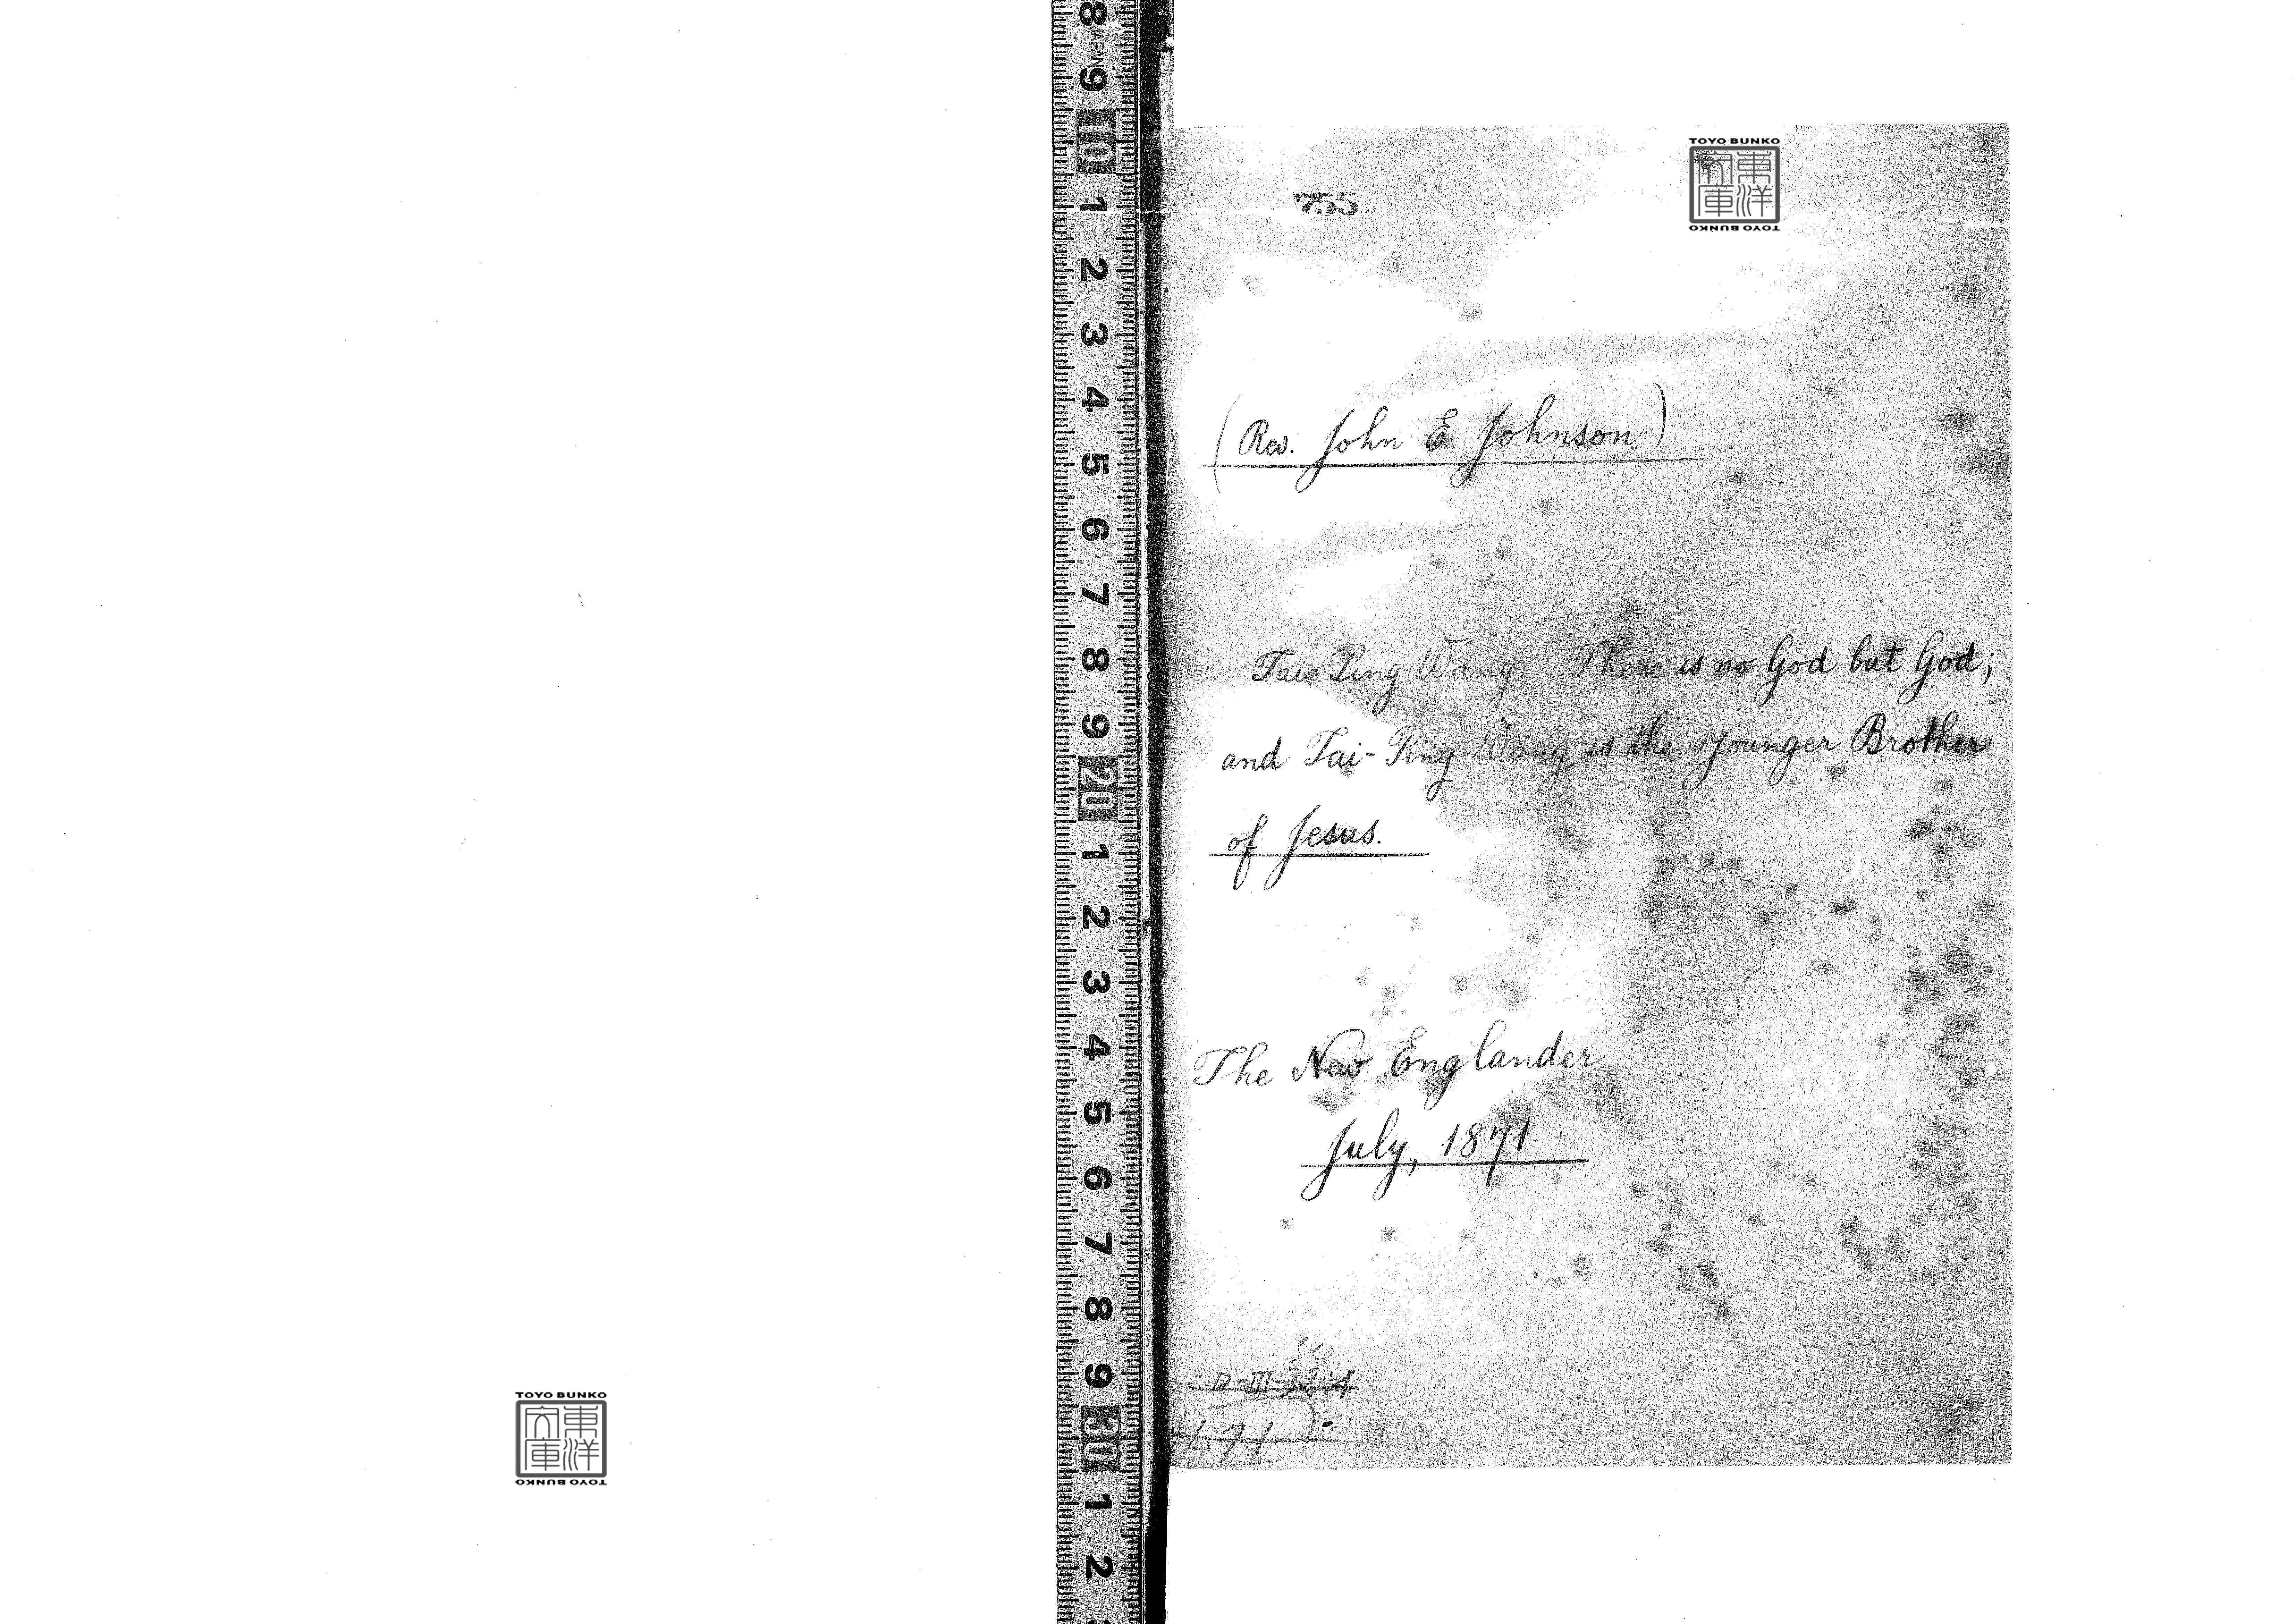 8 JAPAN 9 10 1 2 3 4 5 6 7 8 9 20 1 2 3 4 5 6 7 8 9 30 1 2
TOYO BUNKO
東洋文庫
TOYO BUNKO
755
(Rev. John E. Johnson)
Tai-Ping-Wang. There is no God but God;
and Tai-Ping-Wang is the Younger Brother
of Jesus.
The New Englander
July, 1871
30
P-III-32:4
TOYO BUNKO
東洋文庫
TOYO BUNKO